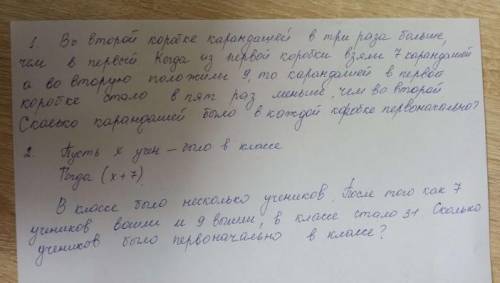 1. Во второй коробке карандашей в три раза больше,
чем в первой Когда из первой коробки взяли 7 карандашей
а во вторую положили 9, то карандашей в первой
коробке стало в пят раз меньше, чем во второй
Сколько карандашей было в каждой коробке первоначально?
2. Пусть х учен – было в классе
Тогда (х+7)
В классе было несколько учеников. После того как 7
учеников вошли и 9 вышли, в классе стало 31. Сколько
учеников было первоначально в классе?